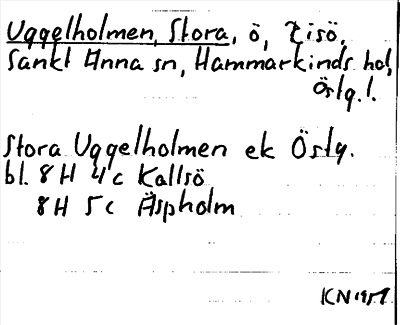 Uggelholmen, Stora, ö, Tisö,
Sankt Anna sn, Hammarkinds hd,
Östg. l.
Stora Uggelholmen ek Östg.
bl. 8H 4c Kallsö
8H 5c Äspholm